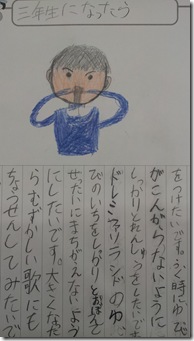 三年生になったら
をつけたいです。ふく時にゆび
がこんがらないように
しっかりとれんしゅうをしたいです
ドレミファソラシドのゆ
びのいちをしっかりとおぼえて
ぜったいにまちがえないよう
にしたいです。大きくなった
らむずかしい歌にも
ちょうせんしてみたいで